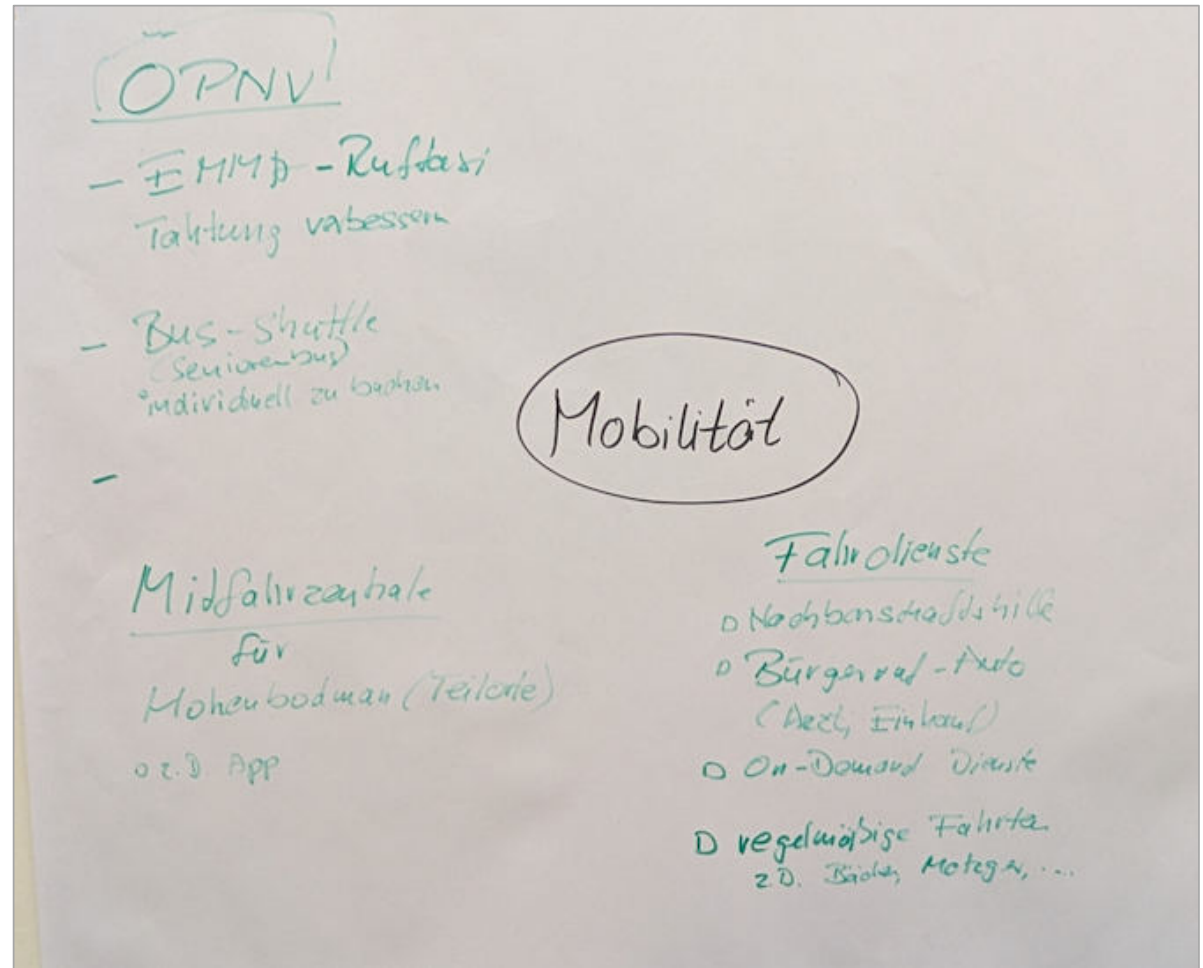 ÖPNV
- EMMA - Ruftaxi
Taktung verbessern
- Bus-Shuttle
(Seniorenbus)
individuell zu buchen
-
Mobilität
Mitfahrzentrale
für
Hohenbodman (Teilorte)
o z.B App
Fahrdienste
Nachbarschaftshilfe
Bürgerrad-Auto
(Arzt, Einkauf)
On-Demand Dienste
regelmäßige Fahrten
z.B. Bäcker, Metzger, ...